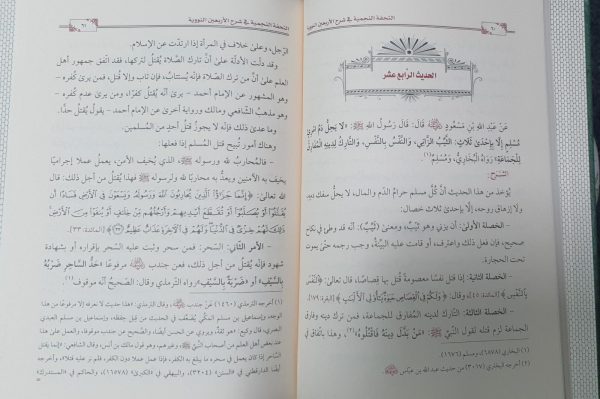 التحفة النجمية في شرح الأربعين النووية
٦٠
الحديث الرابع عشر
عَنْ عَبْدِ اللهِ بْنِ مَسْعُودٍ ﷺ قَالَ: قَالَ رَسُولُ اللهِ ﷺ: «لا يَحِلُّ دَمُ امْرِئٍ
مُسْلِمٍ إِلَّا بِإِحْدَى ثَلاثٍ: الثَّيِّبُ الزَّانِي، وَالنَّفْسُ بِالنَّفْسِ، وَالتَّارِكُ لِدِينِهِ المُفَارِقُ
لِلْجَمَاعَةِ» رَوَاهُ الْبُخَارِيُّ، وَمُسْلِمٌ(١).
الشرح:
يُؤخذ من هذا الحديث أنَّ كُلَّ مسلم حرامُ الدَّم والمال، لا يحلُّ سفك دمه
ولا إزهاق روحه، إلَّا بإحدى ثلاث خصال:
- الخصلة الأولى: أن يزني وهو ثَيِّبٌ، ومعنى (ثَيِّبٌ): أنه قد وطئ في نكاح
صحيح، فإن فعل ذلك واعترف، أو قامت عليه البيِّنةُ، وجب رجمه حتَّى يموت
تحت الحجارة.
- الخصلة الثانية: إذا قتل نفسًا معصومةً قُتل بها قِصاصًا، قال تعالى: ﴿ٱلنَّفۡسَ
بِٱلنَّفۡسِ﴾ [المائدة: ٤٥] وقال: ﴿وَلَكُمۡ فِي ٱلۡقِصَاصِ حَيَوٰةٞ يَٰٓأُوْلِي ٱلۡأَلۡبَٰبِ﴾ [البقرة: ١٧٩].
- الخصلة الثالثة: التارك لدينه المفارق للجماعة، فمن ترك دينه وفارق
الجماعة لزم قتله لقول النَّبيِّ ﷺ: «مَنْ بَدَّلَ دِينَهُ فَاقْتُلُوهُ»(٢)، وهذا باتِّفاق في
(١) البخاري (٦٨٧٨)، ومسلم (١٦٧٦).
(٢) أخرجه البخاري (٣٠١٧) من حديث عبد الله بن عبَّاس
التحفة النجمية في شرح الأربعين النووية
٦١
الرَّجل، وعلى خلاف في المرأة إذا ارتدَّت عن الإسلام.
وقد دلَّت الأدلَّة على أنَّ تارك الصَّلاة يُقتل لتركها، فقد اتَّفق جمهور أهل
العلم على أنَّ من ترك الصَّلاة فإنَّه يُستتابُ، فإن تاب وإلا قُتل، فمن يرى كُفره –
وهو المشهور عن الإمام أحمد – يرى أنَّه يُقتل كفرًا، ومن يرى عدم كُفره –
وهو مذهبُ الشَّافعي ومالك ورواية أخرى عن الإمام أحمد – يقول يُقتل حدًّا.
وما عدى ذلك فإنَّه لا يجوزُ قتلُ أحدٍ من المُسلمين.
وهناك أمور تُبيح قتل المسلم إذا فعلها:
- فالمُحاربُ لله ورسوله ﷺ، الذي يُخيف الآمن، يعملُ عملا إجراميًّا
يخيف به الآمنين ويعدُّ به محاربا لله ولرسوله ﷺ فهذا يُقتل من أجل ذلك: قال
الله تعالى: ﴿إِنَّمَا جَزَٰٓؤُاْ ٱلَّذِينَ يُحَارِبُونَ ٱللَّهَ وَرَسُولَهُۥ وَيَسۡعَوۡنَ فِي ٱلۡأَرۡضِ فَسَادًا أَن
يُقَتَّلُوٓاْ أَوۡ يُصَلَّبُوٓاْ أَوۡ تُقَطَّعَ أَيۡدِيهِمۡ وَأَرۡجُلُهُم مِّنۡ خِلَٰفٍ أَوۡ يُنفَوۡاْ مِنَ ٱلۡأَرۡضِۚ
ذَٰلِكَ لَهُمۡ خِزۡيٞ فِي ٱلدُّنۡيَاۖ وَلَهُمۡ فِي ٱلۡأٓخِرَةِ عَذَابٌ عَظِيمٌ ٣٣﴾ [المائدة: ٣٣].
- الأمر الثاني: السِّحر: فمن سحر وثبت عليه السِّحر بإقراره أو بشهادة
شهود فإنَّه يُقتلُ من أجل ذلك، فعن جندب ﷺ مرفوعًا «حَدُّ السَّاحِرِ ضَرْبَةٌ
بِالسَّيْفِ» أو «ضَرْبَةٌ بِالسَّيْفِ»(١) رواه التِّرمذي وقال: الصَّحيحُ أنَّه موقوف.
(١) أخرجه الترمذي (١٤٦٠) عَنْ جندب ﷺ، وقال الترمذي: «هذا حديث لا نعرفه إلا مرفوعًا من هذا
الوجه، وإسماعيل بن مسلم المكي يُضعَّف في الحديث من قِبل حفظه، وإسماعيل بن مسلم العبدي
البصري، قال وكيع: هو ثقةٌ، ويروى عن الحسن أيضًا، والصحيح عن جندب موقوف، والعمل على هذا
عند بعض أهل العلم من أصحاب النبي ﷺ وغيرهم، وهو قول مالك بن أنس، وقال الشافعي: «إنما يُقتل
السَّاحر إذا كان يعمل في سحره ما يبلغ به الكفر، فإذا عمل عملا دون الكفر، فلم نر عليه قتلا»، وأخرجه
أيضًا الدارقطني في «السنن» (٣٢٠٤)، والبيهقي في «الكبرى» (١٦٥٧٨)، والحاكم في «المستدرك»